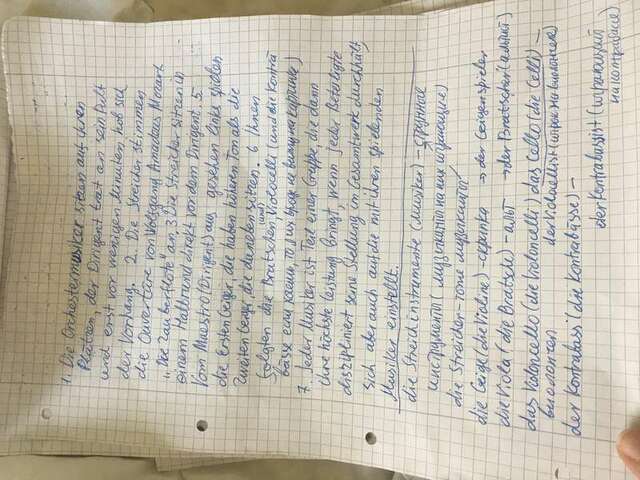 1. Die Orchestermusiker sitzen auf ihren
Plätzen, der Dirigent trat an sein Pult
und erst vor wenigen Minuten hob sich
der Vorhang. 2. Die Streicher stimmen
die Ouvertüre von Wolfgang Amadeus Mozart
"Die Zauberflöte" an. 3 Die Streicher sitzen in
einem Halbrund direkt vor dem Dirigent. 5.
Vom Maestro (Dirigent) aus gesehen links spielen
die Ersten Geige, die haben höheren Ton als die
Zweiten Geige, die daneben sitzen. 6 Ihnen
folgten die Bratschen, (und) Violoncelli (und die Kontra
bässe
7. Jeder Musiker ist Teil einer Gruppe, die dann
ihre höchste Leistung bringt, wenn jeder Beteiligte
diszipliniert seine Stellung im Gesamtwerk durchhält,
sich aber auch auf die mit ihm spielenden
Musiker einstellt.
die Streichinstrumente (Musiker) – струнные
инструменти (
die Streicher –
die Geige (die Violine) – скрипка → der Geigenspieler
die Viola (die Bratsche) – альт → der Bratscher (альтист)
das Violoncello (die Violoncelli) das Cello (die Celli) –
виолончел der Violinellist
der Kontrabass (die Kontrabässe) –
der Kontrabassist (
на контрабасе)